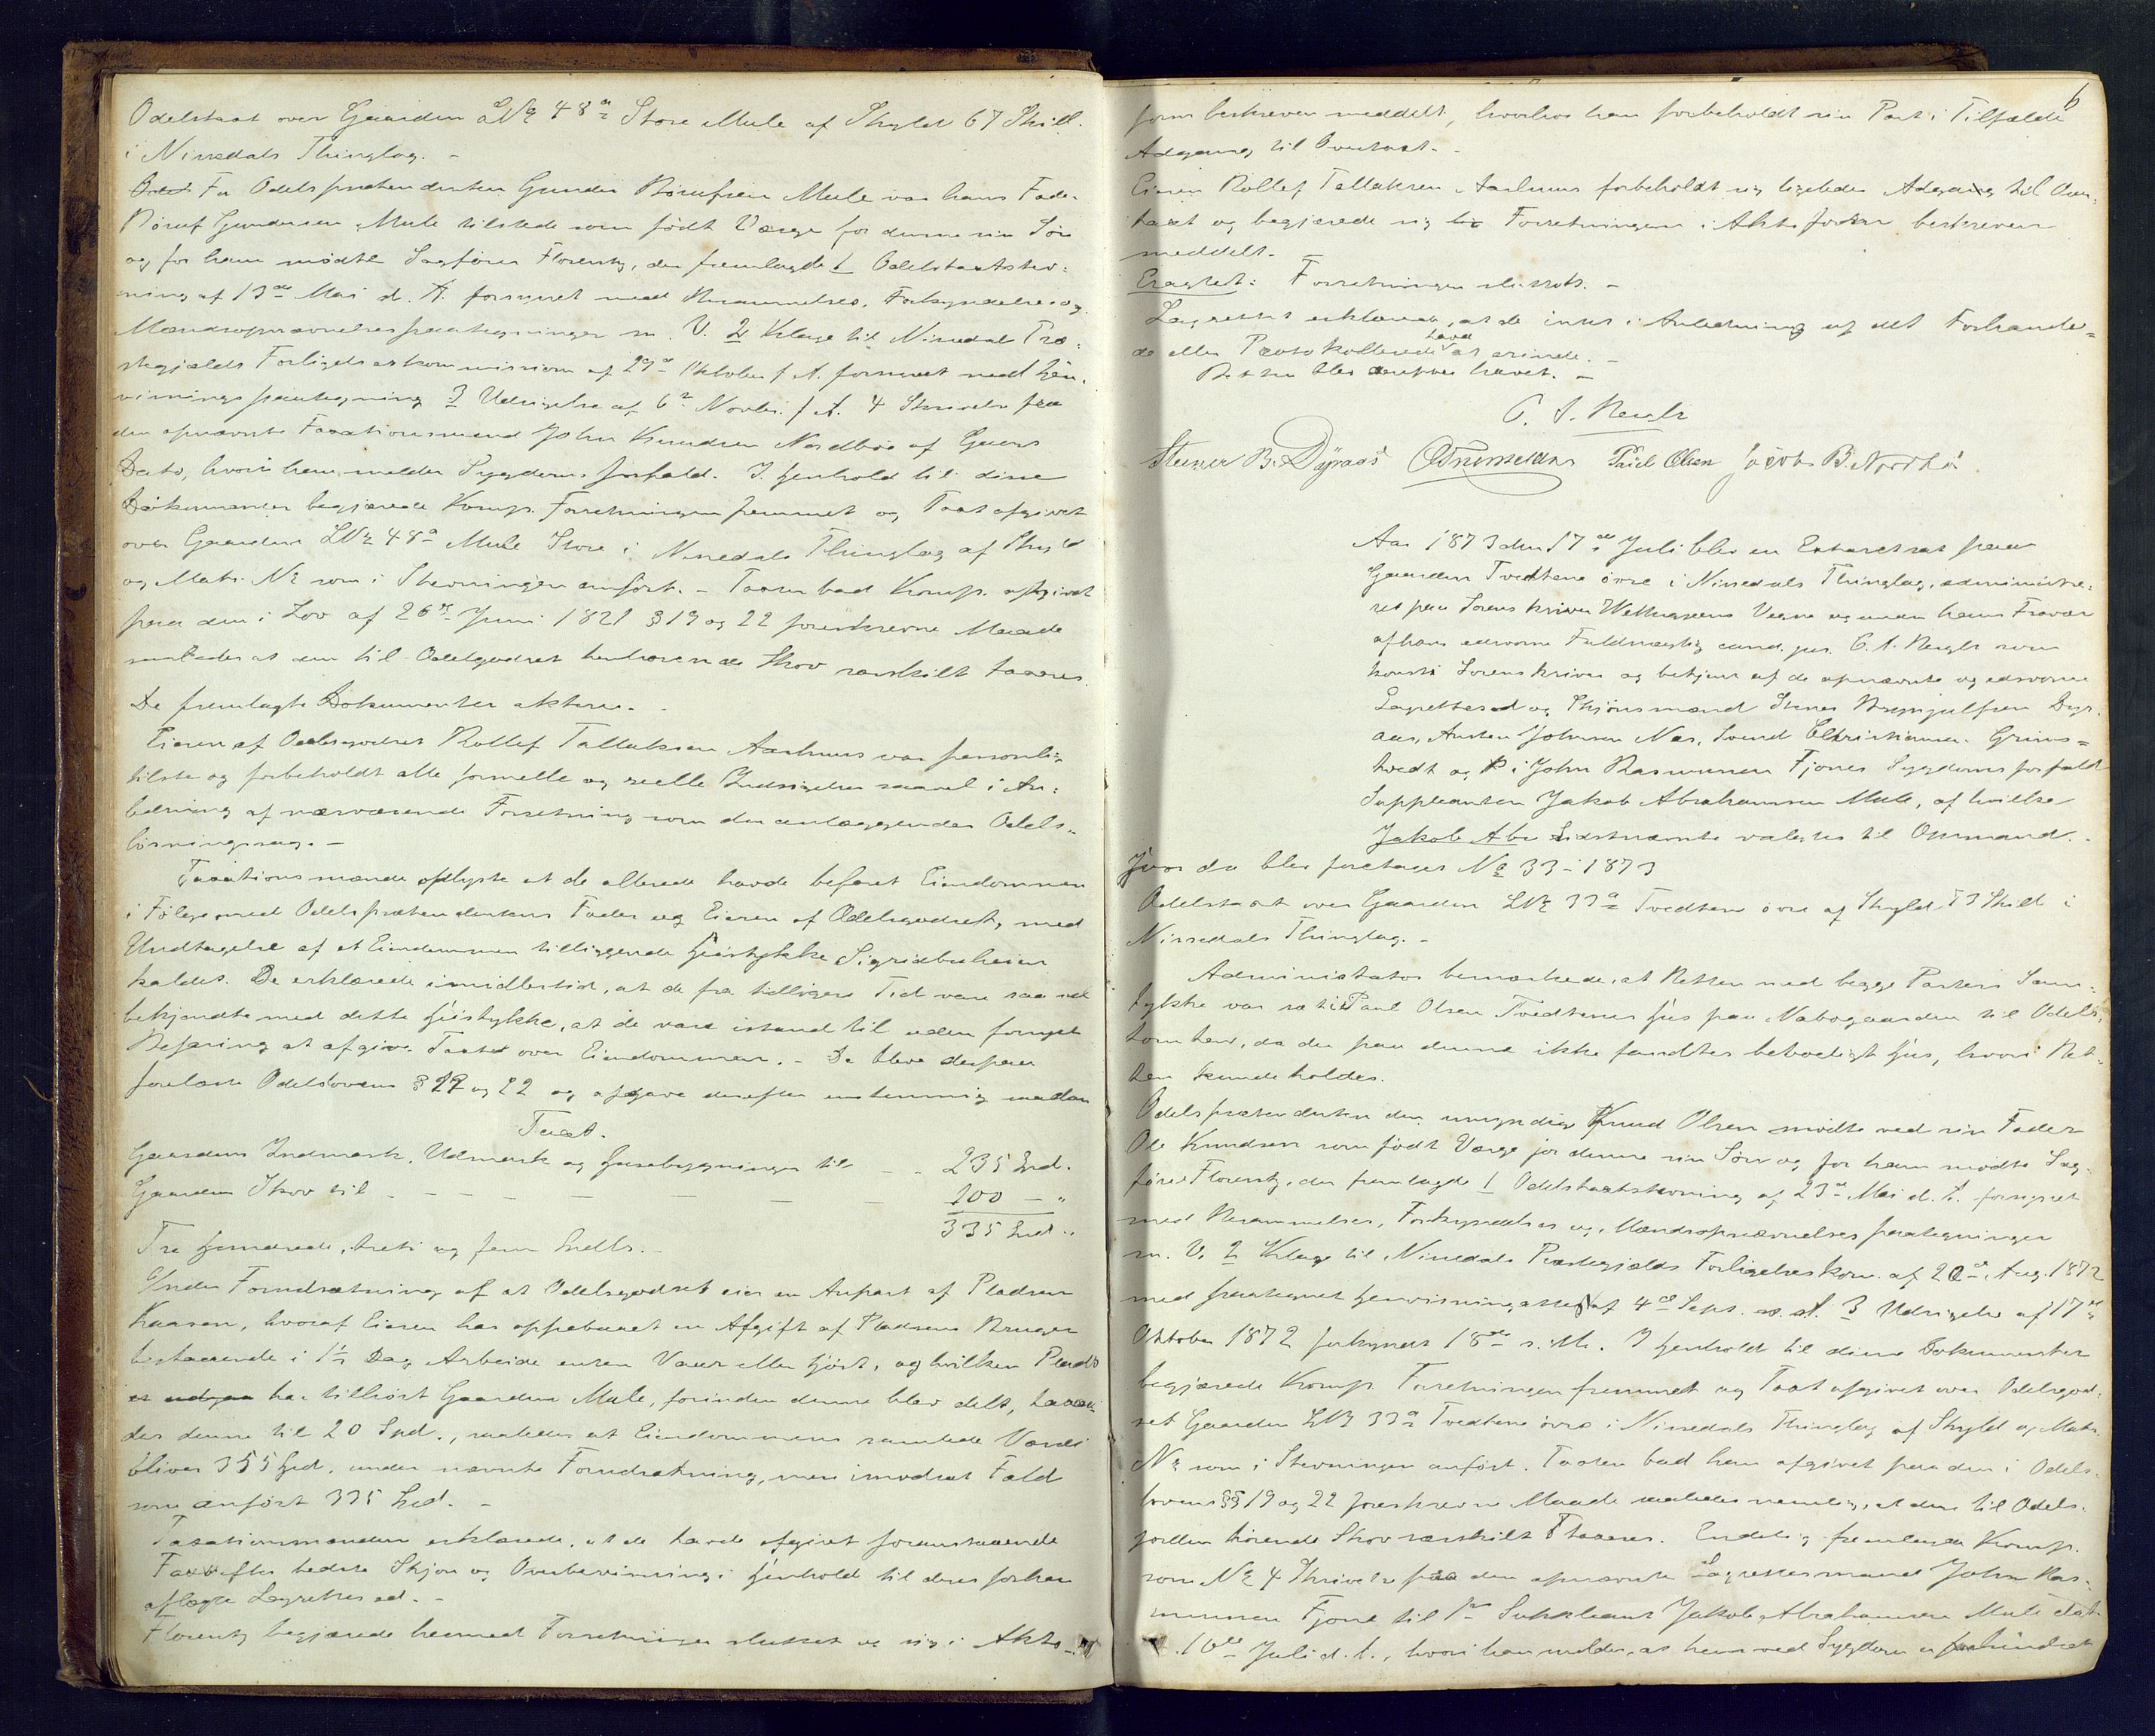 Odelstaxt over Gaarden LN2 48a Store Mule af Skyld 67 Skill.
i Nissedals Thinglag. –
For Odelsprætendenten Gunder Rörufsen Mule var hans Fader
Röruf Gundersen Mule tilstede som födt Værge for denne sin Sön
og for ham mödte Sagförer Florentz, der fremlagde 1 Odelstaxtstev=
ning af 13de Mai d. A. forsynet med Berammelses, Forkyndelses og
Mændsopnævnelsespaategninger m. V. 2 Klage til Nissedal Præ=
stegjælds Forligelseskommission af 29de Oktober f. A. forsynet med Hen=
visningspaategning 3 Udsigelse af 6te Novbr. f. A. 4 Skrivelse fra
den opnævnte Taxationsmand John Knudsen Nordbö af Gaars
Dato, hvori han melder Sygdoms forfald. I Henhold til disse
Dokumenter begjærede Komp. Forretningen fremmet og Taxt afgivet
over Gaarden LN2 48a Mule Store i Nissedals Thinglag af Skyld
og Matr. No som i Stevningen anfört. – Taxten bad Komp. afgivet
paa den i Lov af 26de Juni 1821 § 19 og 22 foreskrevne Maade
saaledes at den til Odelsgodset henhörende Skov særskilt taxeres.
De fremlagte Dokumenter akteres. –
Eieren af Odelsgodset Rollef Tallaksen Aarhuus var personlig
tilstede og forbeholdt alle formelle og reelle Indsigelser saavel i An=
ledning af nærværende Forretning som den anlæggendes Odels=
lösningssag. –
Taxationsmænde oplyste at de allerede havde befaret Eiendommen
i Fölge med Odelsprætendentens Fader og Eieren af Odelsgodset, med
Undtagelse af et Eiendommen tilliggende Heistykke Sigridbuheien
kaldet. De erklærede imidlertid, at de fra tidligere Tid vare saa vel
bekjendte med dette Heistykke, at de vare istand til uden fornyet
Befaring at afgive Taxt over Eiendommen. – De bleve derpaa
forelæste Odelslovens § 19 og 22 og afgave derefter enstemmig saadan
Taxt.
Gaardens Indmark, Udmark og Husebygninger til – – 235 Spd.
Gaardens Skov til – – – – – – 100 – "
335 Spd. "
Tre Hundrede, treti og fem Spdlr. –
Under Forudsætning af at Odelsgodset eier en Anpart af Pladsen
Kaasen, hvoraf Eieren har oppebaaret en Afgift af Pladsens Bruger
bestaaende i 1½ Dag Arbeide enten Vaar eller Höst, og hvilken Plads
har tilhört Gaarden Mule, forinden denne blev delt, taxe=
des denne til 20 Spd., saaledes at Eiendommens samlede Værdi
bliver 355 Spd. under nævnte Forudsætning, men i modsat Fald
som anfört 335 Spd. –
Taxationsmændene erklærede, at de havde afgivet foranstaaende
Taxt efter bedste Skjön og Overbevisning i Henhold til deres forhen
aflagte Lagrettes ed. –
Florentz begjærede hermed Forretningen sluttet og sig i Akts=
6
form beskreven meddelt, hvorhos han forbeholdt sin Part i Tilfælde
Adgang til Overtaxt. –
Eieren Rollef Tallaksen Aarhuus forbeholdt sig ligeledes Adgang til Over=
taxt og begjærede sig Forretningen i Akts form beskreven
meddelt. –
Eragtet: Forretningen sluttet. –
Lagrettet erklærede, at de intet i Anledning af det Forhandle=
de eller Protokollerede havde at erindre. –
Retten blev derefter hævet. –
C. S. Neuls
Steiner B. Dÿraas Paul Olsen Jacob B. Nordbö
Aar 1873 den 17de Juli blev en Extraret sat paa
Gaarden Tvedtene övre i Nissedals Thinglag, administre=
ret paa Sorenskriver Wettergreens Vegne og under hans Fravær
af hans edsvorne Fuldmægtig cand. jur. C. S. Neuls som
konst. Sorenskriver og betjent af de opnævnte og edsvorne
Lagrettes og Skjönsmænd Stener Brynjulfsen Dyr=
aas, Austen Johnsen Næs, Svend Christiansen Grims=
tvedt og i John Rasmussen Fjones Sygdoms forfald
Suppleanten Jakob Abrahamsen Mule, af hvilke
Jakob Abr Sidstnævnte valgtes til Opmand. –
Hvor da blev foretaget No 33 – 1873
Odelstaxt over Gaarden LN2 33a Tvedtene övre af Skyld 73 Skill i
Nissedals Thinglag. –
Administrator bemærkede, at Retten med begge Parters Sam=
tykke var sat i Paul Olsen Tvedtenes Hus paa Nabogaarden til Odels=
tomten, da der paa denne ikke fandtes beboeligt Hus, hvori Ret=
ten kunde holdes.
Odelsprætendenten den umyndige Knud Olsen mödte ved sin Fader
Ole Knudsen som födt Værge for denne sin Sön og for ham mödte Sag=
förer Florentz, der fremlagde 1 Odelstaxtstevning af 23de Mai d. A. forsynet
med Berammelses, Forkyndelses og Mændsopnævnelsespaategninger
m. V. 2 Klage til Nissedals Præstegjælds Forligelseskom. af 20de Aug. 1872
med paategnet Henvisningsattest af 4de Septr. s. A. 3 Udsigelse af 17de
Oktober 1872 forkyndt 18de s. M. I Henhold til disse Dokumenter
begjærede Komp. Forretningen fremmet og Taxt afgivet over Odelsgod=
set Gaarden LN2 33a Tvedtene övre i Nissedals Thinglag af Skyld og Matr.
No som i Stevningen anfört. Taxten bad han afgivet paa den i Odels=
lovens §§ 19 og 22 foreskrevne Maade saaledes nemlig, at den til Odels=
jorden hörende Skov særskilt taxeres. Endelig fremlagde Komp.
som No 4 Skrivelse fra den opnævnte Lagrettesmand John Ras=
mussen Fjone til 1ste Suppleant Jakob Abrahamsen Mule dat.
16de Juli d. A., hvori han melder, at han ved Sygdom er forhindret